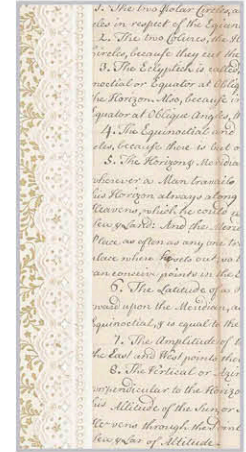 1. The two Polar Circles, a
cles in respect of the Equin
2. The two Colures, the H
circles, because they cut th
3. The Ecliptick is called
noctial or Equator at Obliq
the Horizon. Also, because i
quator at Oblique Angles, t
4. The Equinoctial and
cles, because there is but o
5. The Horizon & Meridia
wherever a Man travails
his Horizon always along
Heavens, which he could
Sea & Land: And the Meri
Place as often as any one tr
place where he sets out wa
an conceive points in the
6. The Latitude of a
ward upon the Meridian, a
Equinoctial, & is equal to the
7. The Amplitude of t
the East and West points the
8. The Vertical or Azim
perpendicular to the Horizo
his Altitude of the Sun or
Heavens through the
Sea & Las of Altitude.